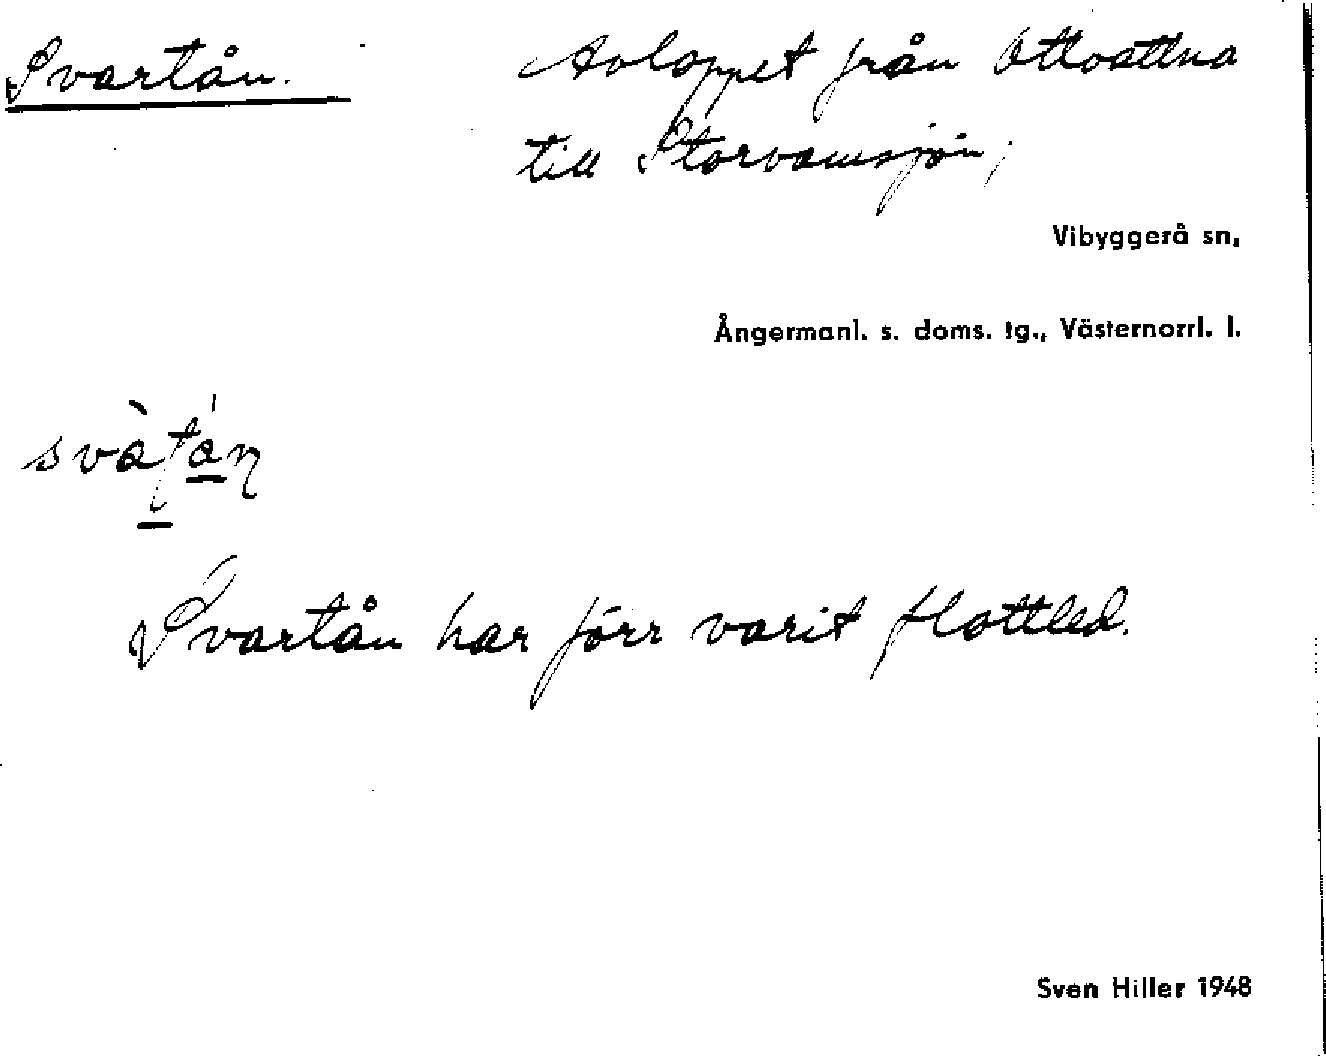 Svartån. Avloppet från Ottvattna
till Storvamsjön,
Vibyggerå sn,
Ångermanl. s. doms. tg., Västernorrl. l.
Svartån har förr varit flottled.
Sven Hiller 1948